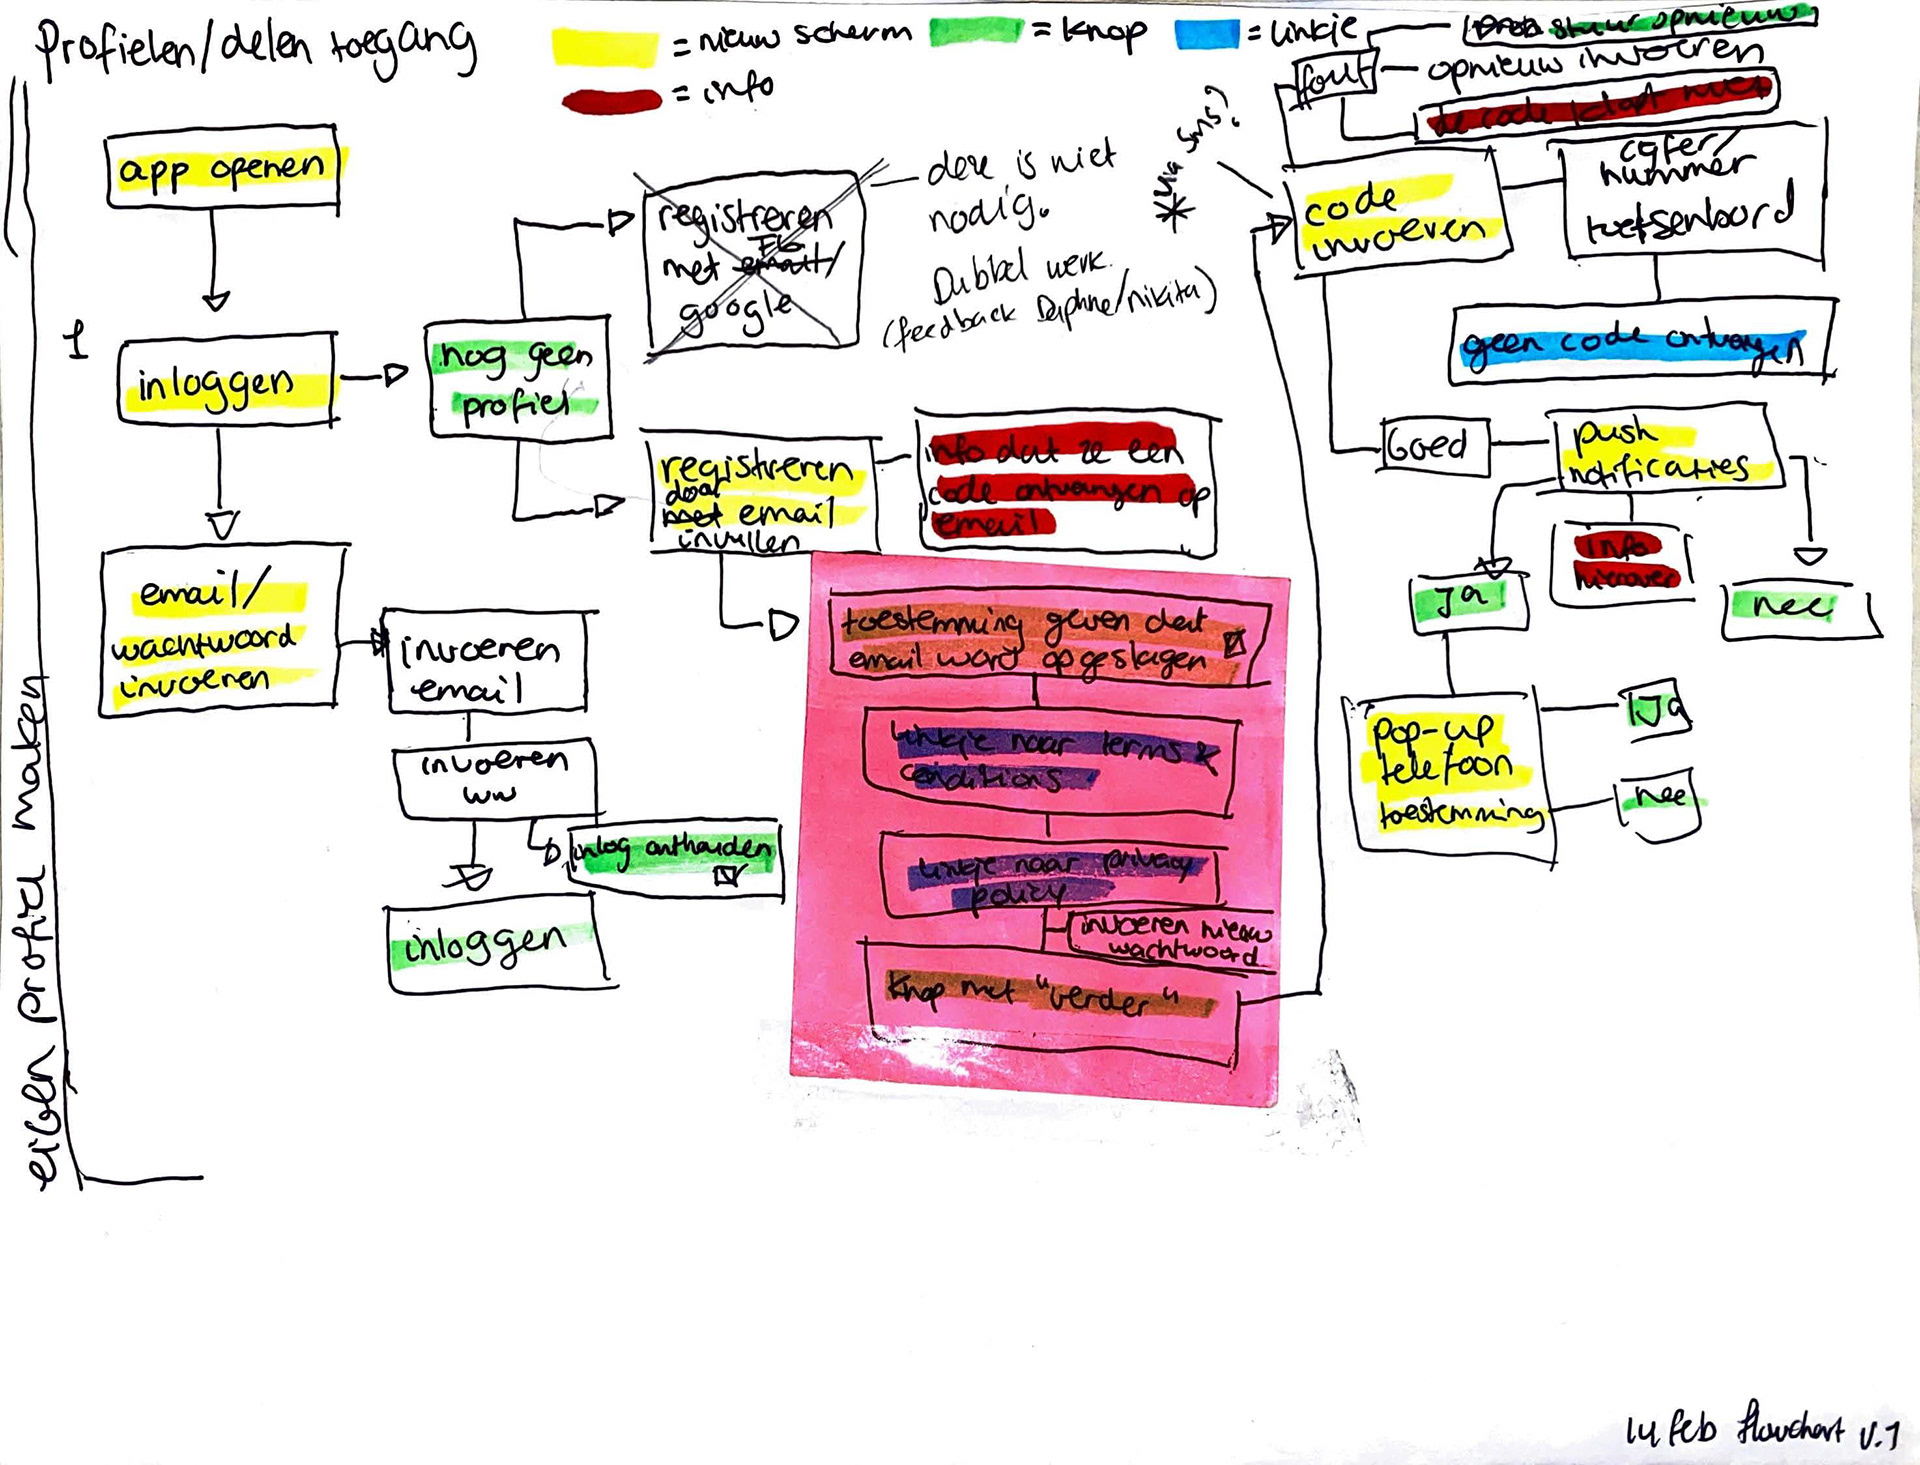 Profielen/delen toegang
= nieuw scherm
= knop
= linkje
= info
eigen profiel maken
1
app openen
inloggen
email/
wachtwoord
invoeren
invoeren
email
invoeren
ww
inlog onthouden
inloggen
nog geen
profiel
registreren
met email/
FB
google
deze is niet
nodig.
Dubbel werk.
(feedback Daphne/nikita)
registreren
door
met email
invullen
info dat ze een
code ontvangen op
email
toestemming geven dat
email word opgeslagen
linkje naar terms &
conditions
linkje naar privacy
policy
invoeren nieuw
wachtwoord
knop met "verder"
* via sms?
code
invoeren
fout
stuur opnieuw
opnieuw invoeren
de code klopt niet
cijfer/
nummer
toetsenbord
geen code ontvangen
Goed
push
notificaties
info
hierover
ja
nee
pop-up
telefoon
toestemming
Ja
nee
14 feb flowchart v.1